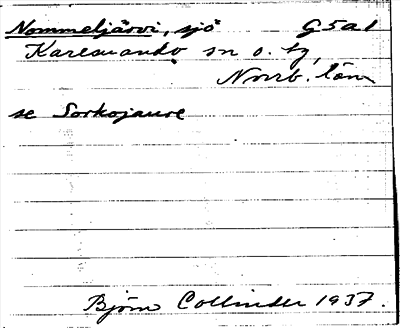 Nommeljärvi, sjö G5a1
Karesuando sn o. tg,
Norrb. län
se Sorkojaure
Björn Collinder 1937.